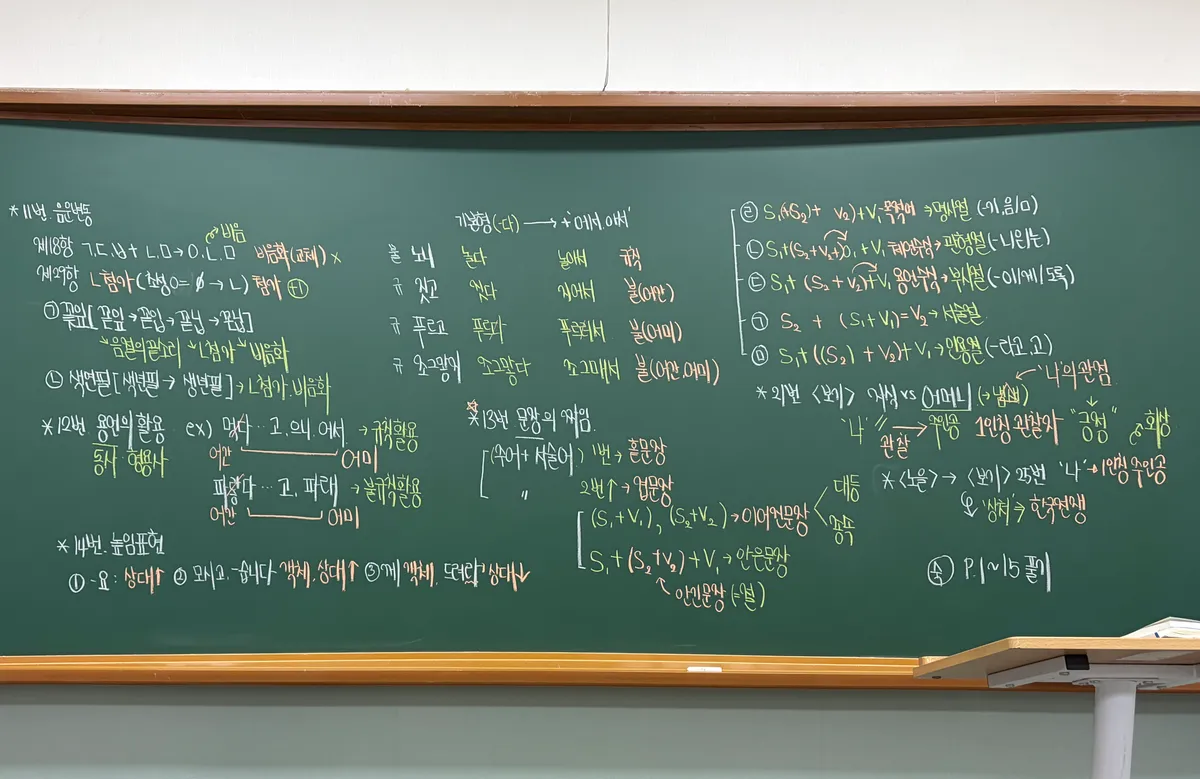 *11번. 음운변동
비음
제18항 ㄱ,ㄷ,ㅂ + ㄴ,ㅁ → ㅇ,ㄴ,ㅁ 비음화(교체) ×
제29항 ㄴ첨가 (초성 ㅇ= ∅ → ㄴ) 첨가 +1
㉠ 꽃잎 [꼳잎 → 꼳입 → 꼳닙 → 꼰닙]
↘음절의끝소리 ↘ㄴ첨가 ↘비음화
㉡ 색연필 [색년필 → 생년필] → ㄴ첨가. 비음화
*12번 용언의 활용 ex) 먹다 … 고, 으니, 어서 → 규칙활용
동사. 형용사 어간 어미
파랗다 … 고, 파래 → 불규칙활용
어간 어미
*14번. 높임표현
① -요: 상대↑ ② 모시고, -습니다 객체, 상대↑ ③ 께 객체, 상대↓
기본형(-다) → +'어서, 아서'
불 노니 놀다 놀아서 규칙
규 짓고 짓다 지어서 불(어간)
규 푸르고 푸르다 푸르러서 불(어미)
규 조그맣게 조그맣다 조그매서 불(어간, 어미)
*13번 문장의 짜임.
(주어 + 서술어) 1번 → 홑문장
〃 2번↑ → 겹문장
(S₁+V₁), (S₂+V₂) → 이어진문장 < 대등
종속
S₁ + (S₂+V₂) + V₁ → 안은문장
안긴문장 (=절)
㉣ S₁+(S₂+ V₂)+V₁ 목적어 → 명사절 (-기,음/ㅁ)
㉡ S₁+(S₂+V₂+)O₁ + V₁ 체언수식 → 관형절(-ㄴ/은/는)
㉢ S₁+ (S₂+V₂)+V₁ 용언수식 → 부사절 (-이/게/도록)
㉠ S₂ + (S₁+V₁)=V₂ → 서술절
㉤ S₁+((S₂) + V₂)+V₁ → 인용절 (-라고, 고)
*21번 <보기> 자식 vs 어머니 '나'의 관점
'나' 〃 → 관찰 주인공 1인칭 관찰자 "긍정" 회상
*<노을> → <보기> 25번 '나' → 1인칭 주인공
'상처' → 한국전쟁
㉦ P.1~15 풀기